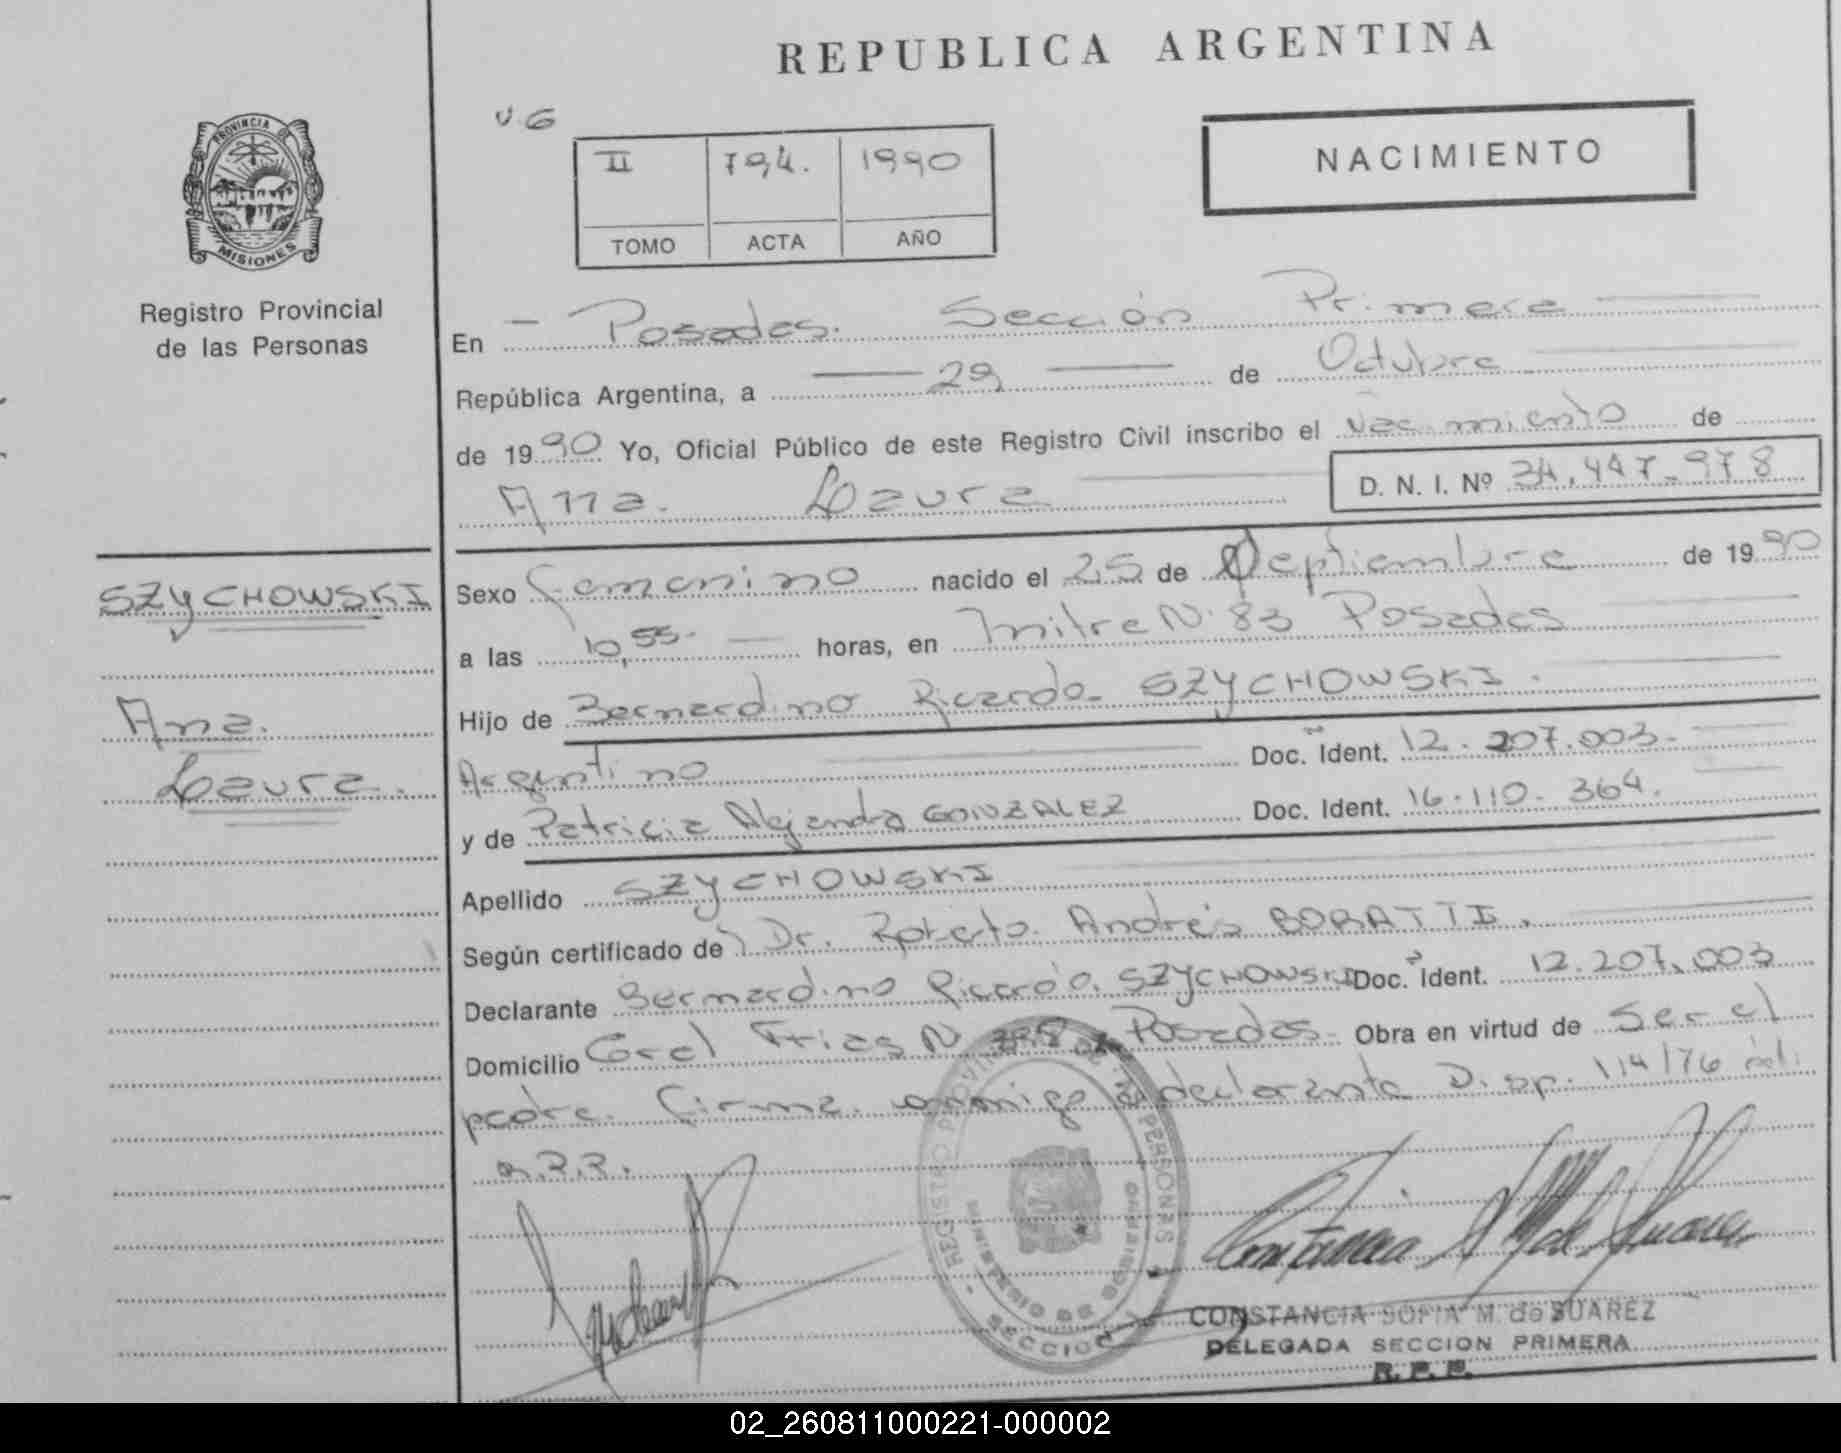 REPUBLICA ARGENTINA
PROVINCIA DE
MISIONES
Registro Provincial
de las Personas
II 794. 1990
TOMO ACTA AÑO
NACIMIENTO
En Posadas. Sección Primera
República Argentina, a 29 de Octubre
de 1990 Yo, Oficial Público de este Registro Civil inscribo el Nacimiento de
Ana Laura D. N. I. Nº 34.447.978
SZYCHOWSKI
Ana
Laura.
Sexo femenino nacido el 25 de Septiembre de 1990
a las 10,55- horas, en Mitre N. 83 Posadas
Hijo de Bernardino Ricardo SZYCHOWSKI.
Argentino Doc. Ident. 12.207.003-
y de Patricia Alejandra GONZALEZ Doc. Ident. 16.110.364.
Apellido SZYCHOWSKI
Según certificado de Dr. Roberto Andrés BORATTI.
Declarante Bernardino Ricardo. SZYCHOWSKI Doc. Ident. 12.207.003
Domicilio Frias N Posadas. Obra en virtud de Ser el
padre. Firma conmigo declarante Disp. 114/76
R.P.P.
REGISTRO PROVINCIAL DE PERSONAS
MINISTERIO DE GOBIERNO
SECCION
CONSTANCIA SOFIA M. de SUAREZ
DELEGADA SECCION PRIMERA
R. P. P.
02_260811000221-000002